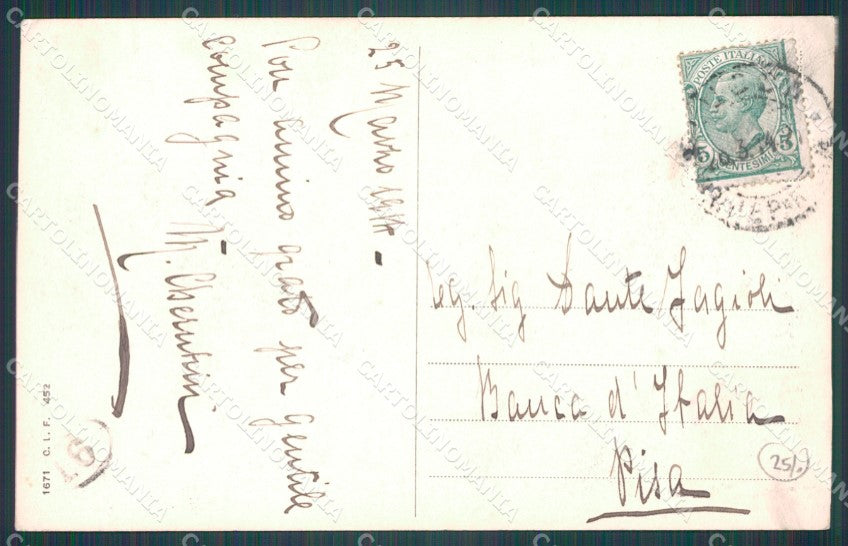 25 Marzo 1911 -
Con animo grato per gentile
compagnia
POSTE ITALIANE
5 5
CENTESIMI
Eg. Sig Dante Fagioli
Banca d' Italia
Pisa
25/.
1671 C. I. F. 452
9
CARTOLINOMANIA